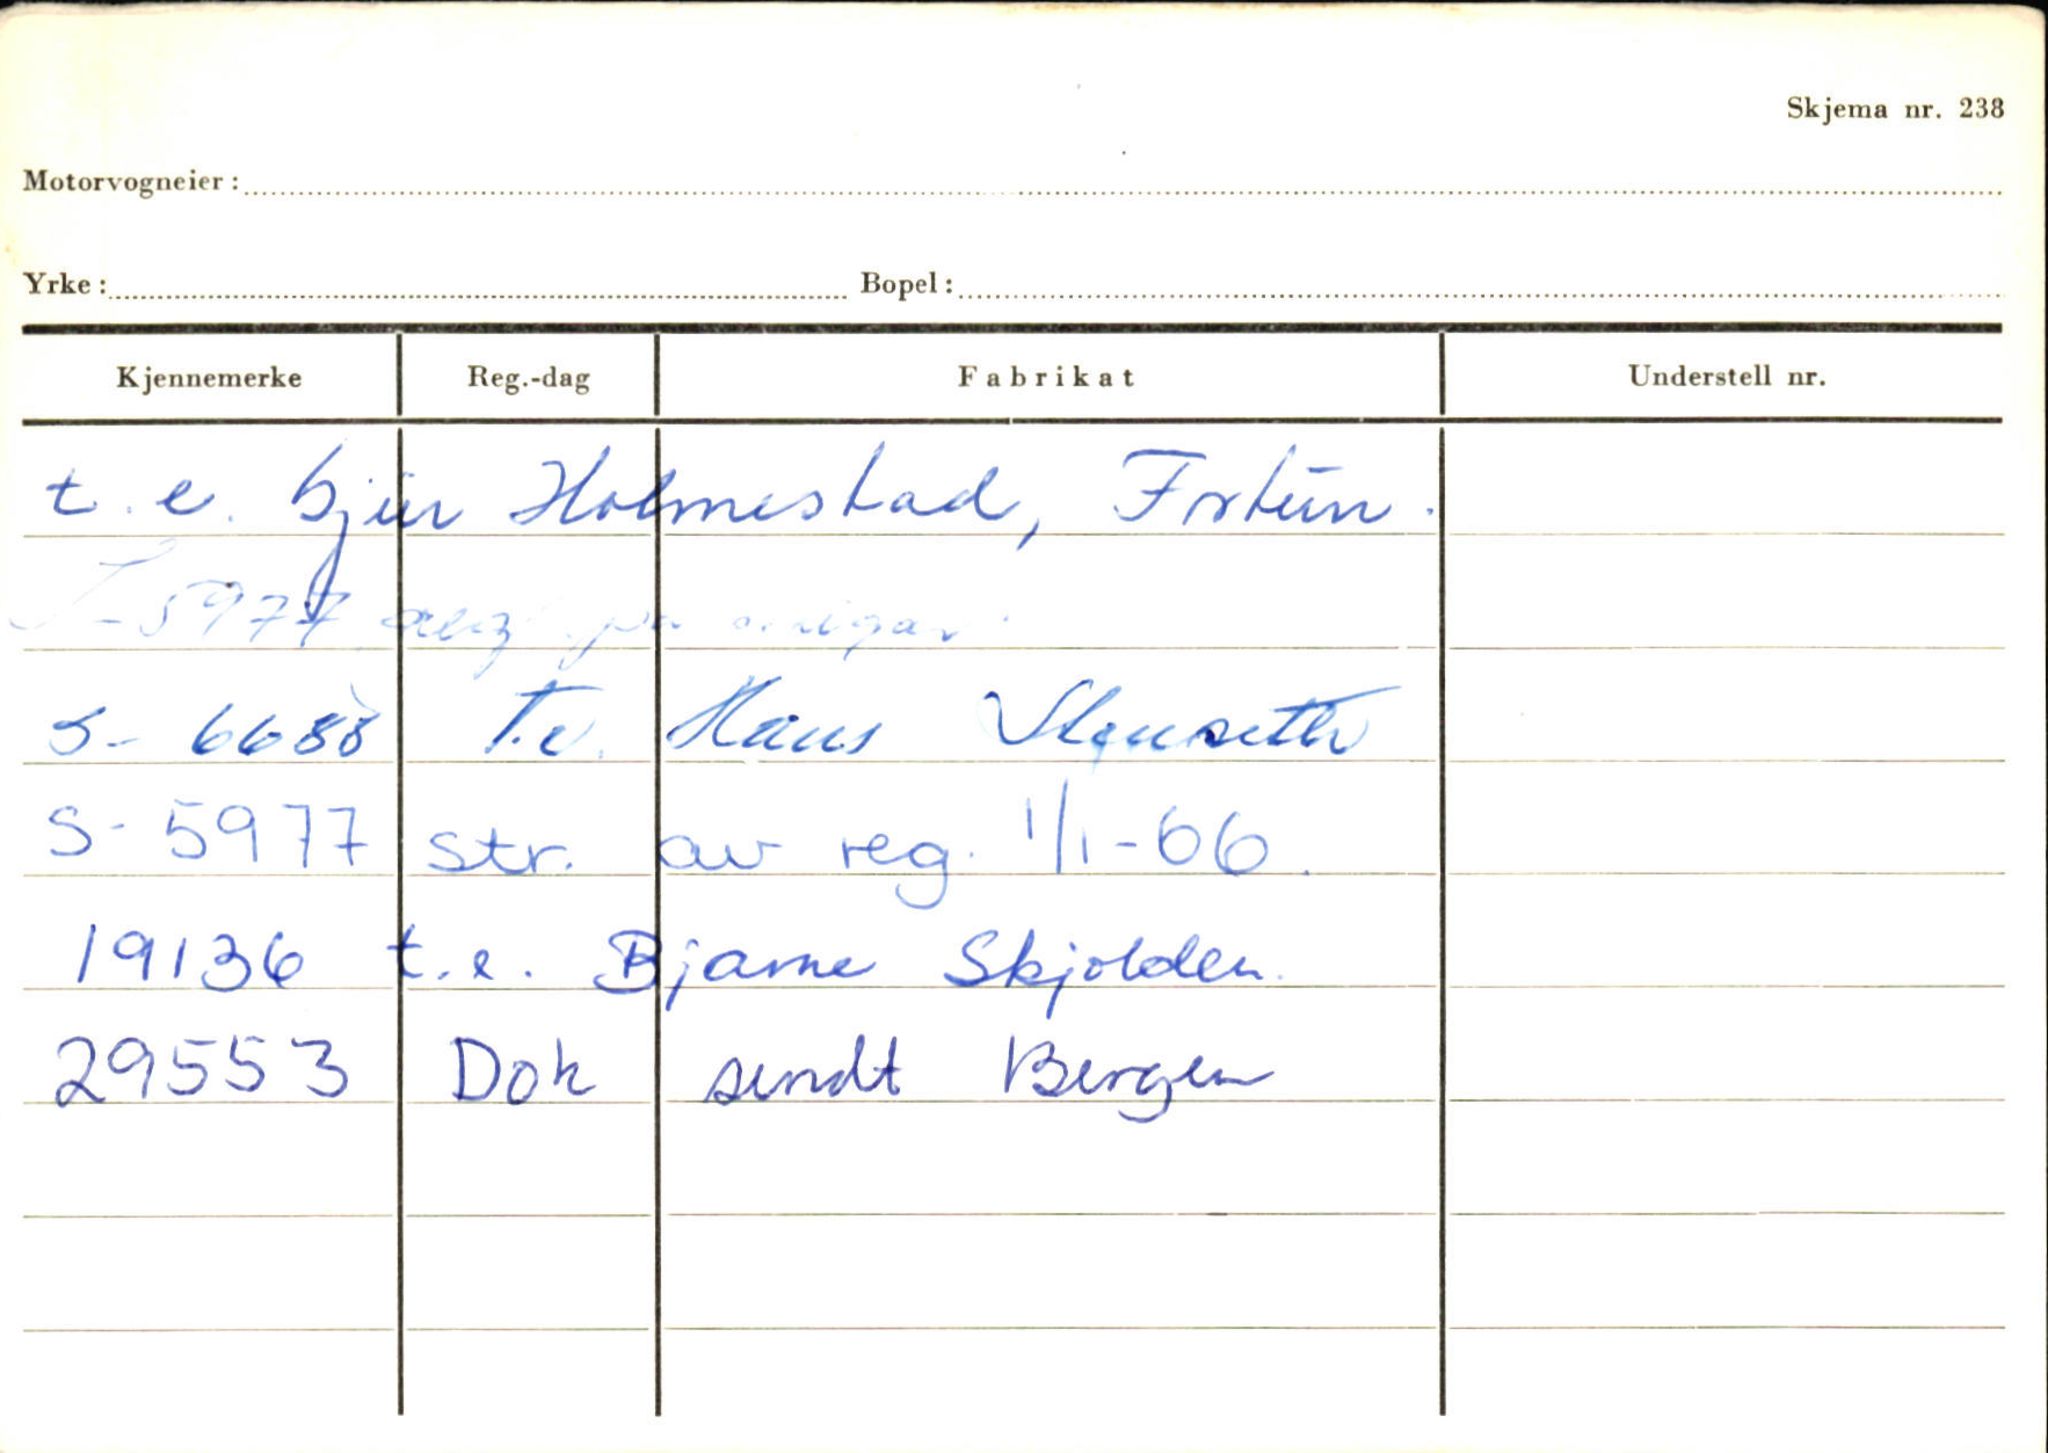 Skjema nr. 238
Motorvogneier:
Yrke: Bopel:
Kjennemerke Reg.-dag Fabrikat Understell nr.
t.e. Holmestad, Fortun.
S-5977 på
S- 6688 T.e. Hans
S- 5977 str. av reg. 1/1-66.
19136 t.e. Bjarne Skjolden.
29553 Dok sendt Bergen